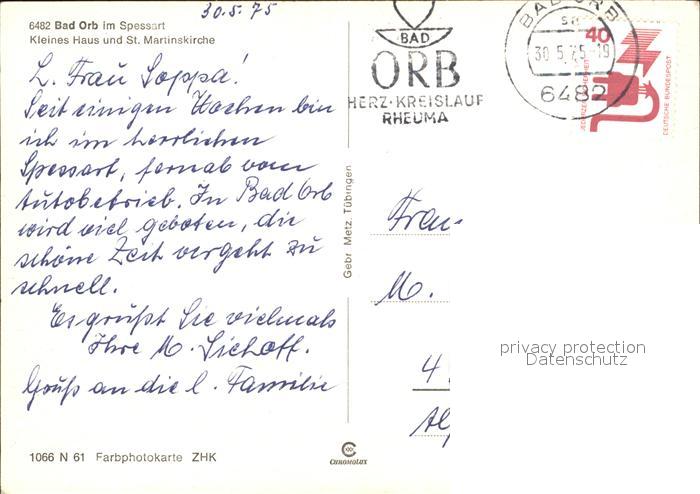 30.5.75
6482 Bad Orb im Spessart
Kleines Haus und St. Martinskirche
L. Frau Soppa!
Seit einigen Wochen bin
ich im herrlichen
Spessart, fernab vom
Autobetrieb. In Bad Orb
wird viel geboten, die
schöne Zeit vergeht zu
schnell.
Es grüßt Sie vielmals
Ihre M. Sichoff.
Gruß an die l. Familie
1066 N 61 Farbphotokarte ZHK
Gebr. Metz, Tübingen
CHROMOLUX
BAD
ORB
HERZ·KREISLAUF
RHEUMA
BAD ORB
30.5.75-19
6482
40
DEUTSCHE BUNDESPOST
Frau
M.
4
privacy protection
Datenschutz